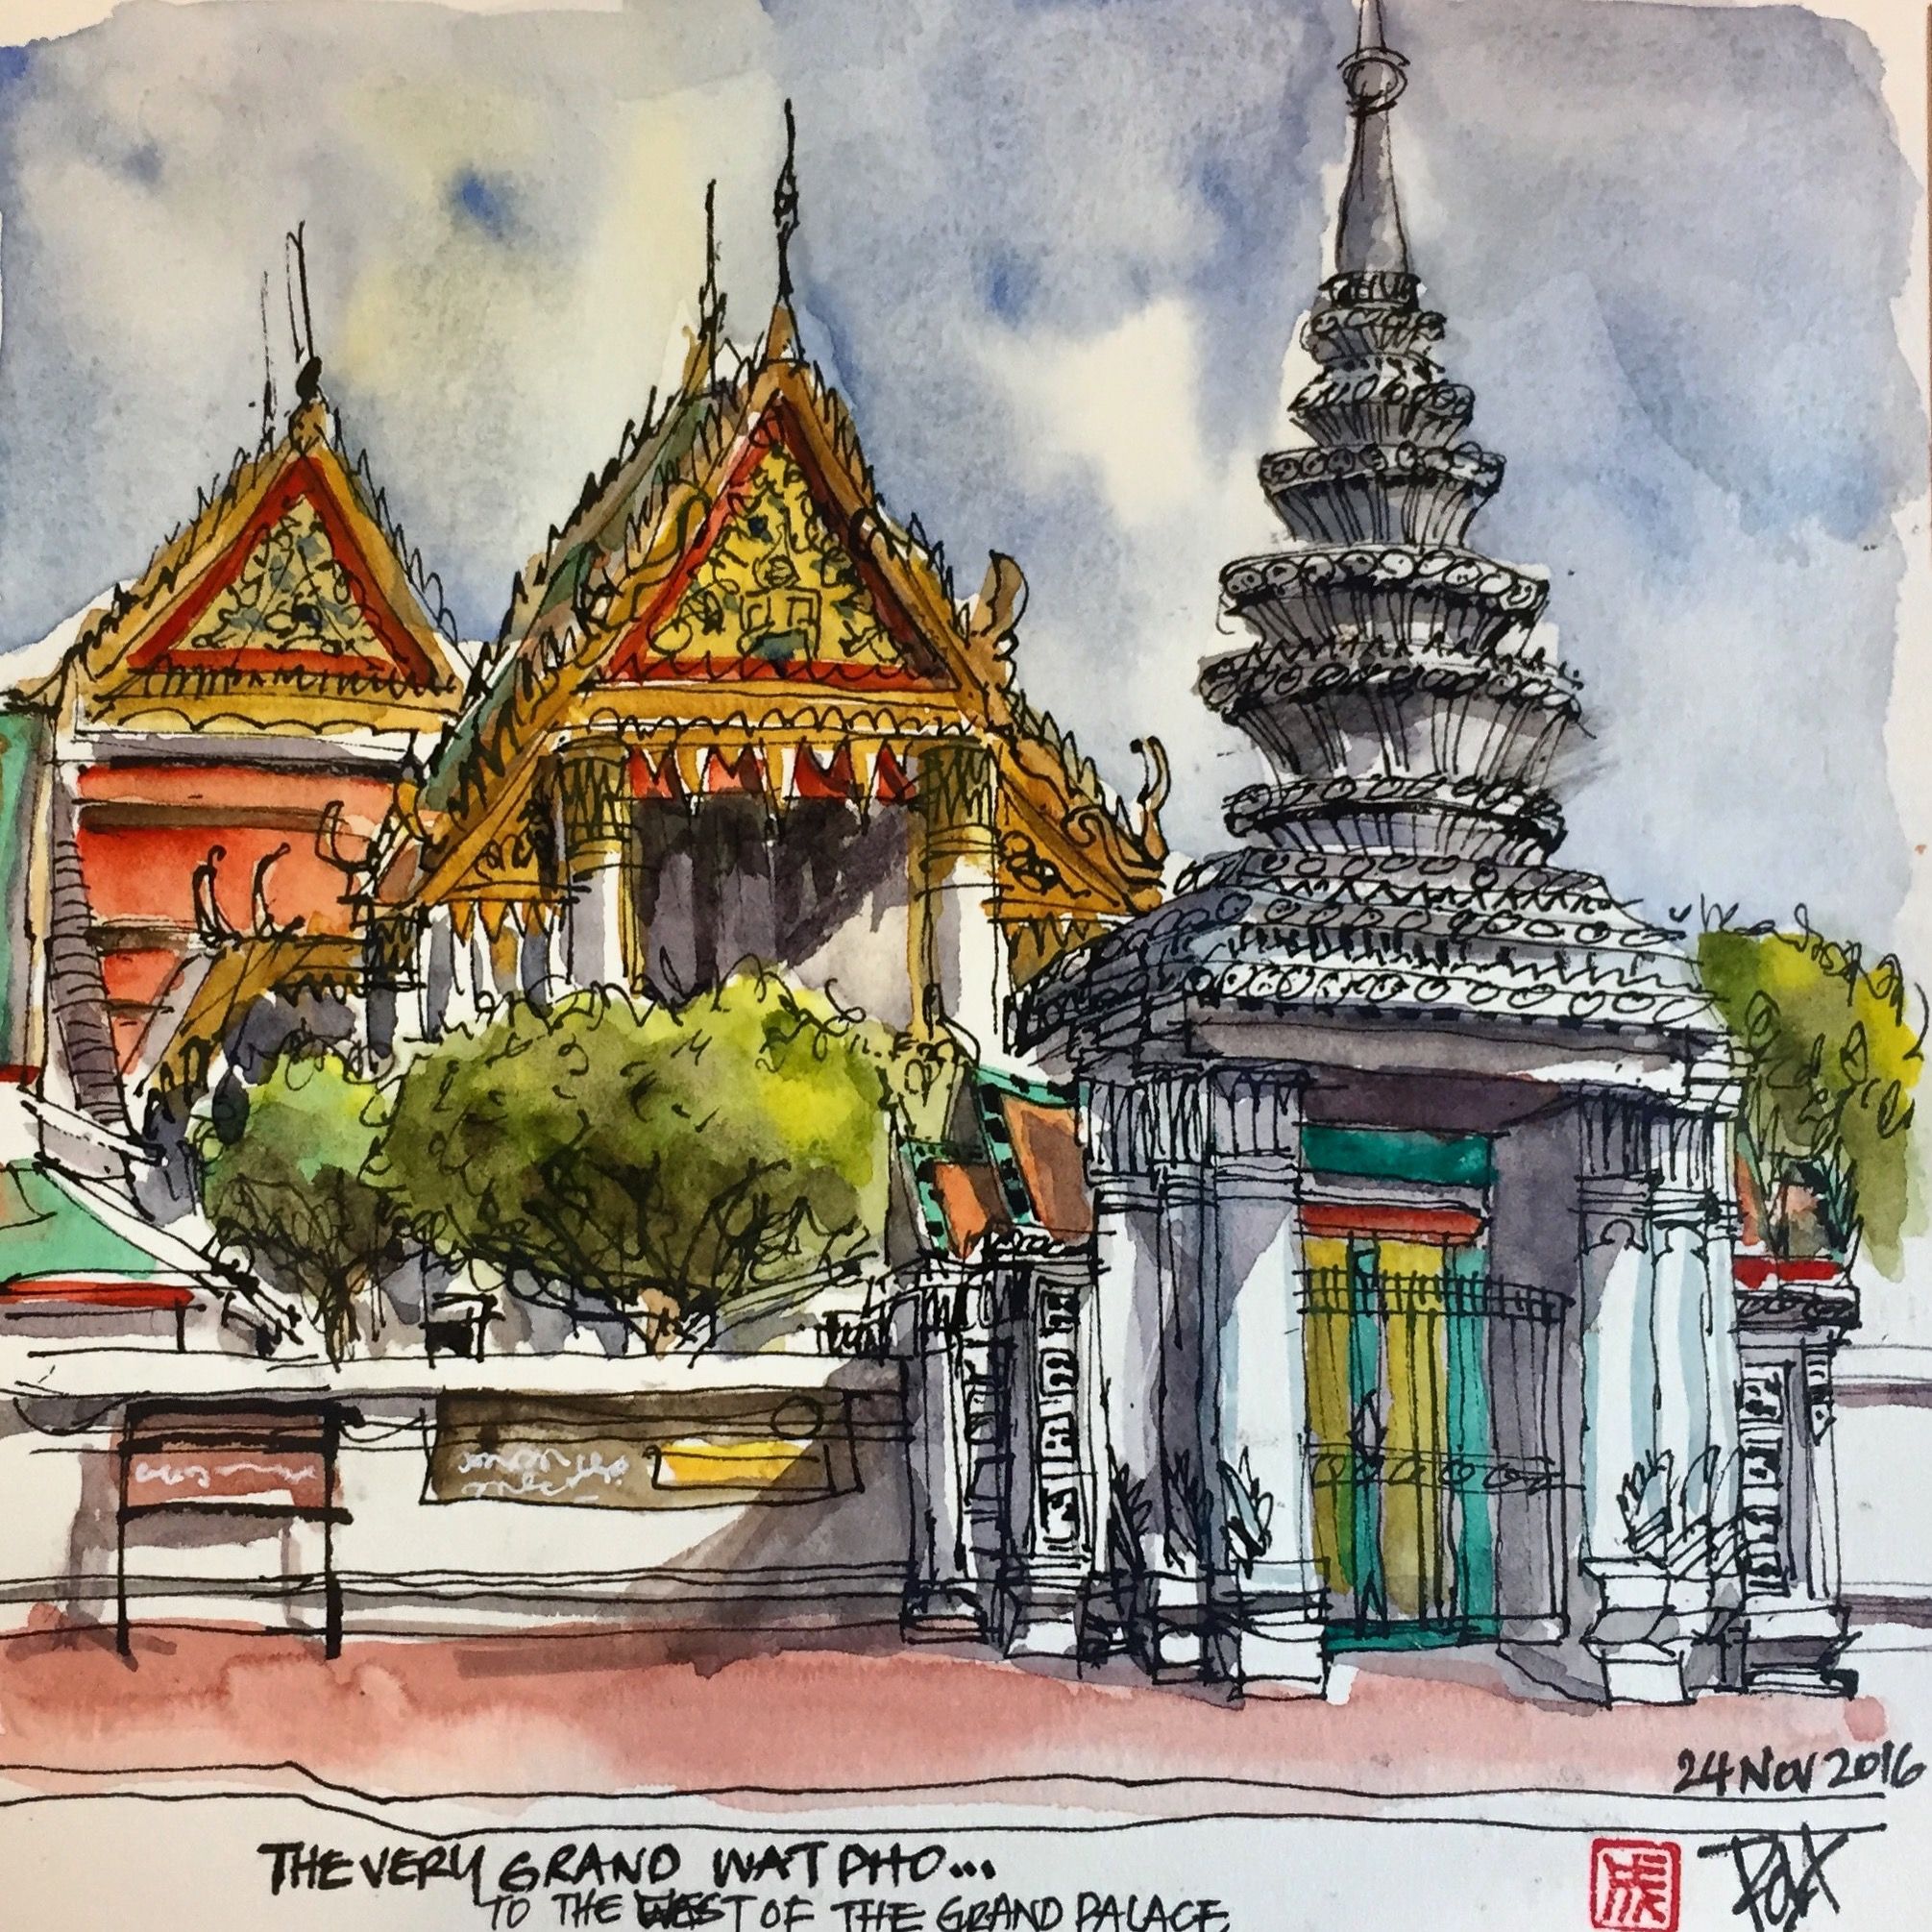 24 NOV 2016
THE VERY GRAND WAT PHO...
TO THE WEST OF THE GRAND PALACE
成